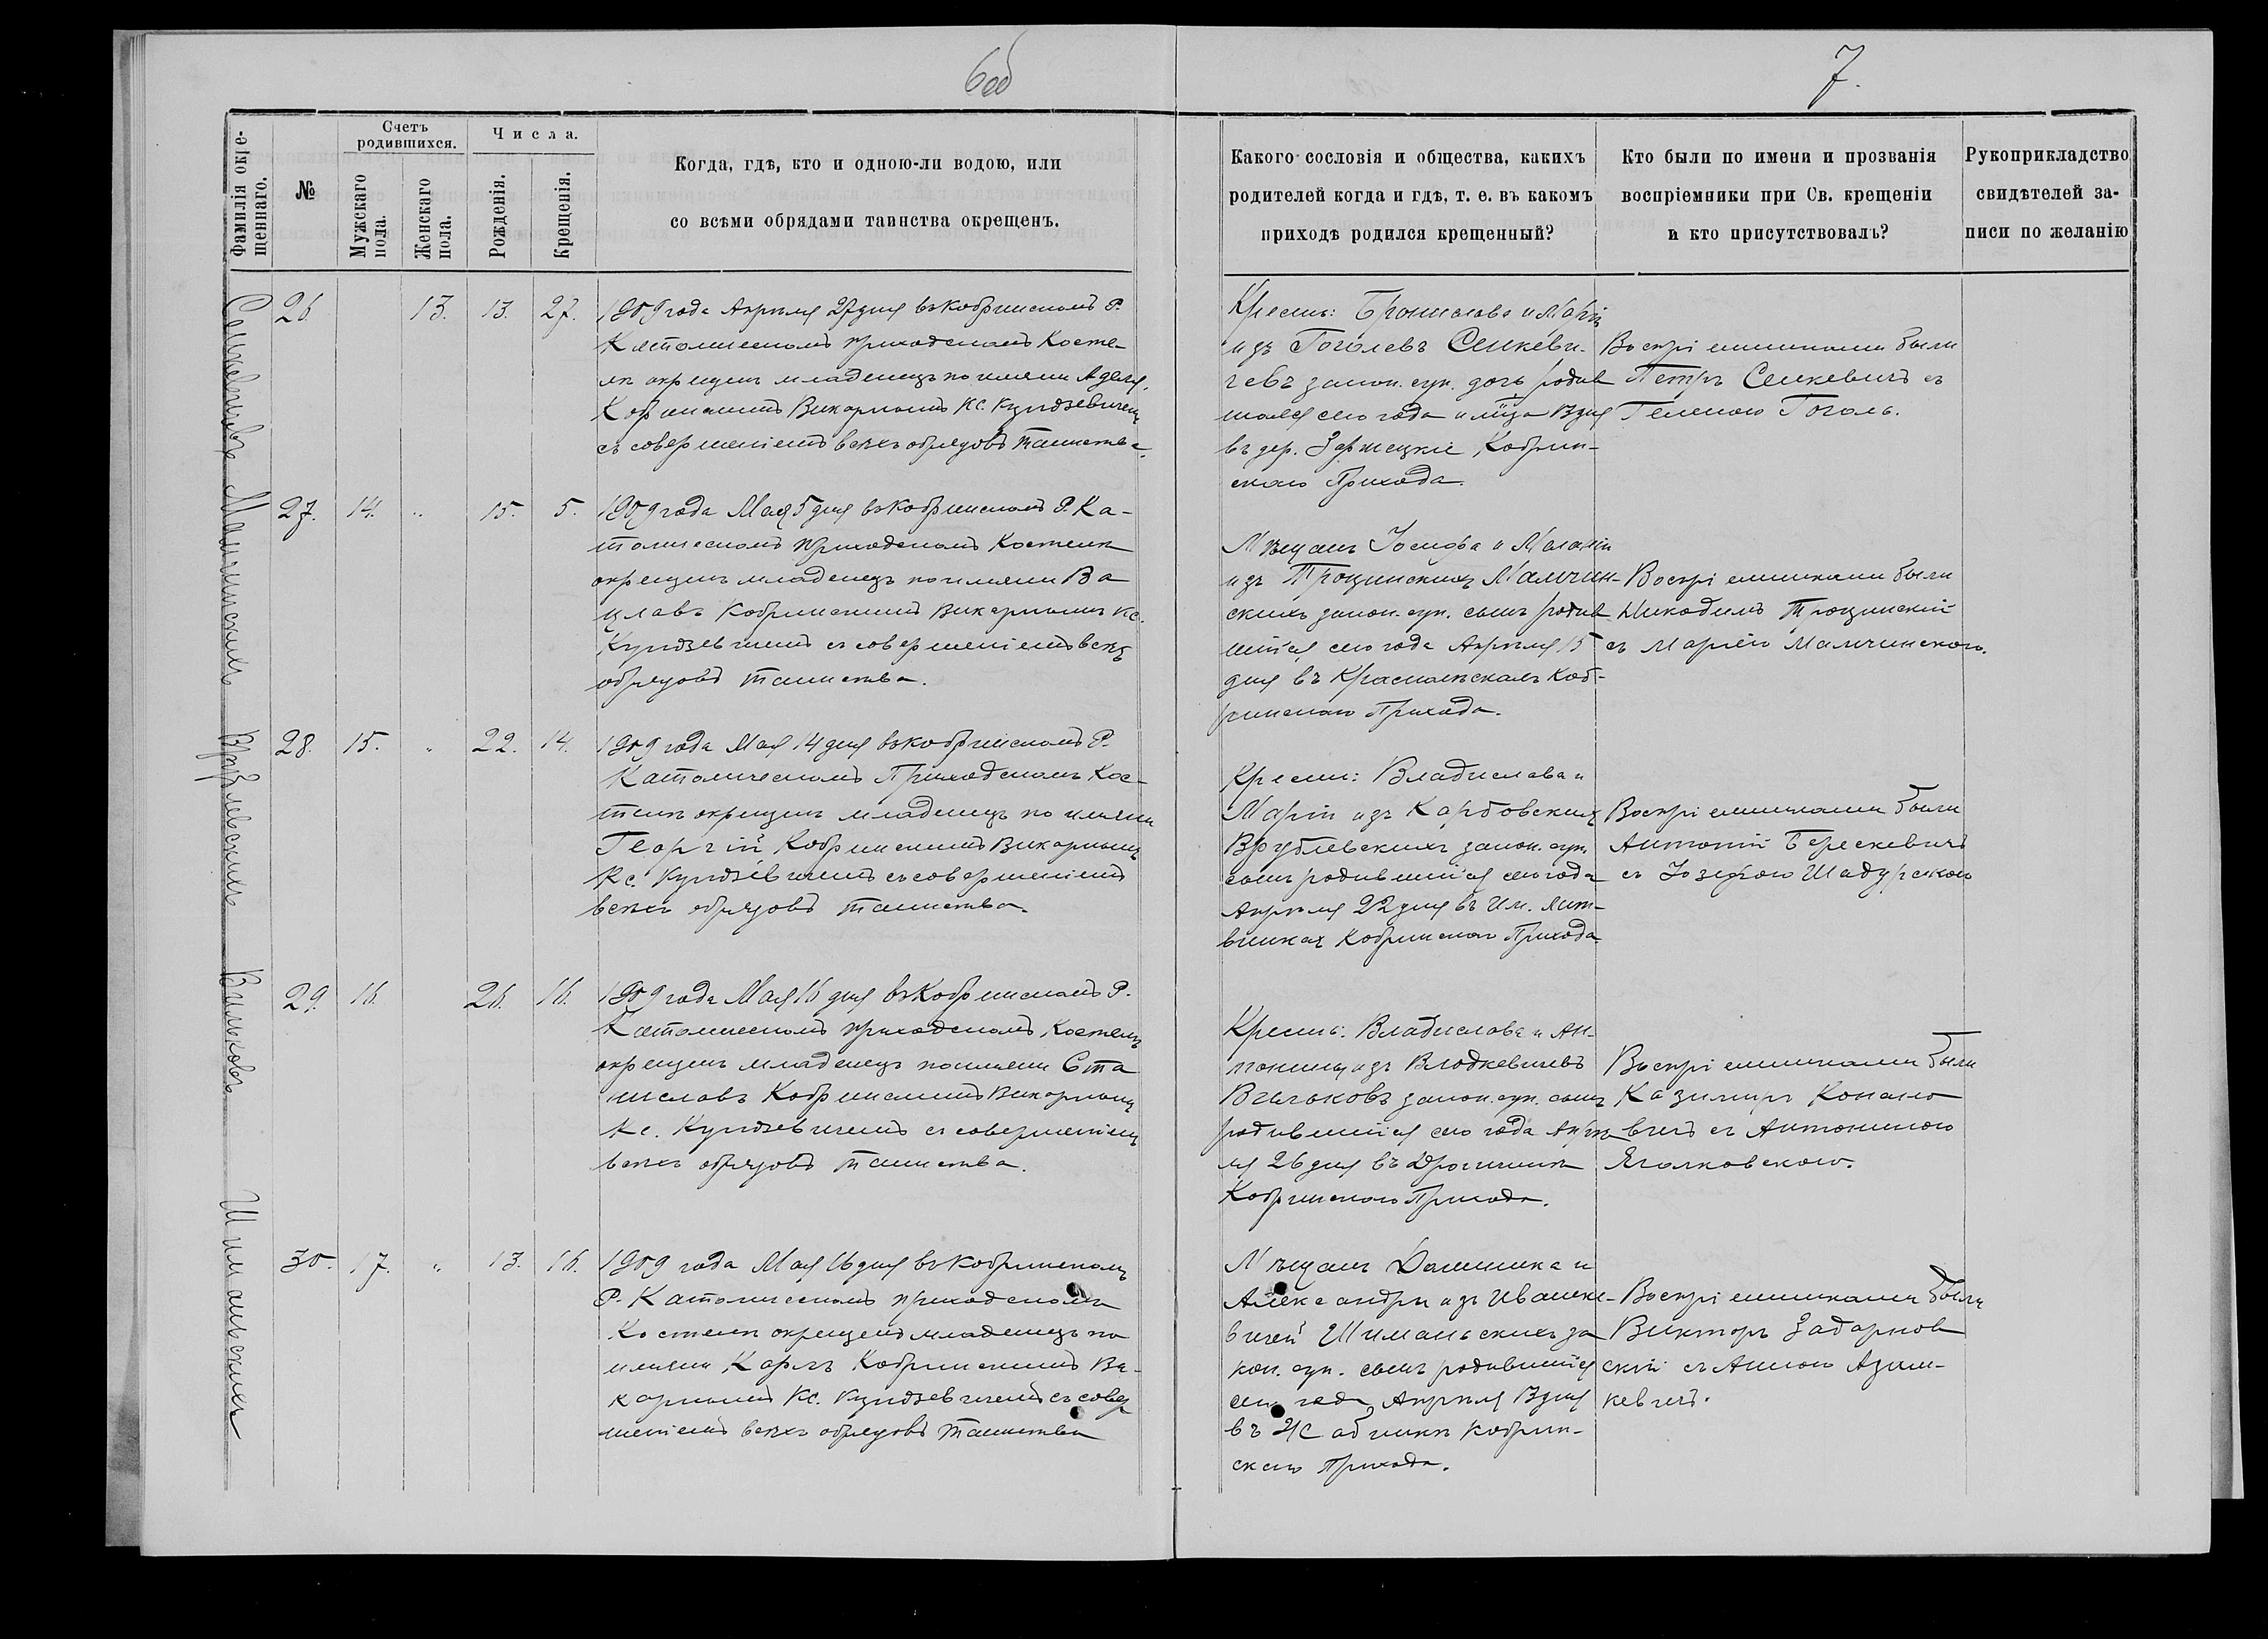 6об
7.
Фамилія окрещеннаго.
№
Счетъ родившихся.
Мужскаго пола.
Женскаго пола.
Числа.
Рожденія.
Крещенія.
Когда, гдѣ, кто и одною-ли водою, или
со всѣми обрядами таинства окрещенъ.
Какого сословія и общества, какихъ
родителей когда и гдѣ, т. е. въ какомъ
приходѣ родился крещенный?
Кто были по имени и прозванія
воспріемники при Св. крещеніи
и кто присутствовалъ?
Рукоприкладство
свидѣтелей за-
писи по желанію
26 13. 13. 27.
1909 года Апрѣля 27 дня въ Кобринскомъ Р.
Католическомъ приходскомъ Косте-
лѣ окрещенъ младенецъ по имени
Кобринскимъ Викарнымъ Кс. Кундзевичемъ
съ совершеніемъ всѣхъ обрядовъ таинства.
Кресть: Бронислава и Маріи
изъ Гоголевъ Сенкеви-
чевъ закон. суп. дочь родив
шаяся сего года и м-ца 13 дня
въ дер. Кобрин-
скаго Прихода.
Воспріемниками были
Петръ Сенкевичъ съ
Геленою Гоголь.
Мальчинскихъ
27. 14. " 15. 5.
1909 года Мая 5 дня въ Кобринскомъ Р. Ка-
толическомъ приходскомъ Костелѣ
окрещенъ младенецъ по имени Ва
цлавъ Кобринскимъ Викарнымъ Кс.
Кундзевичемъ съ совершеніемъ всѣхъ
обрядовъ таинства.
Мѣщанъ Іосифа и Меланіи
изъ Трощинскихъ Мальчин-
скихъ закон. суп. сынъ родив
шійся сего года Апрѣля 15
дня въ Коб-
ринскаго Прихода.
Воспріемниками были
Никодимъ Трощинскій
съ Маріею Мальчинскою.
Врублевскихъ
28. 15. " 22. 14.
1909 года Мая 14 дня въ Кобринскомъ Р.
Католическомъ Приходскомъ Кос-
телѣ окрещенъ младенецъ по имени
Георгій Кобринскимъ Викарнымъ
Кс. Кундзевичемъ съ совершеніемъ
всѣхъ обрядовъ таинства.
Кресть: Владислава и
Маріи изъ Карбовскихъ
Врублевскихъ закон. суп.
сынъ родившійся сего года
Апрѣля 22 дня въ Им. Лит-
винкахъ Кобринскаго Прихода
Воспріемниками были
Антоній Берескевичъ
съ Юзефою Шадурскою
Вильковъ
29. 16. 26. 16.
1909 года Мая 16 дня въ Кобринскомъ Р.
Католическомъ приходскомъ Костелѣ
окрещенъ младенецъ по имени Ста
ниславъ Кобринскимъ Викарнымъ
Кс. Кундзевичемъ съ совершеніемъ
всѣхъ обрядовъ таинства.
Кресть: Владислава и Ан-
тонины изъ Влодкевичевъ
Вильковъ закон. суп. сынъ
родившійся сего года Апрѣ
ля 26 дня въ Дрогичинѣ
Кобринскаго Прихода.
Воспріемниками были
Казимиръ Конано
вичъ съ Антониною
Яголковскою.
Шиманьскихъ
30. 17. " 13. 16.
1909 года Мая 16 дня въ Кобринскомъ
Р. Католическомъ приходскомъ
Костелѣ окрещенъ младенецъ по
имени Карлъ Кобринскимъ Ви-
карнымъ Кс. Кундзевичемъ съ совер
шеніемъ всѣхъ обрядовъ таинства
Мѣщанъ Доминика и
Александры изъ Иванке-
вичей Шиманьскихъ за
кон. суп. сынъ родившійся
сего года Апрѣля 13 дня
въ Кобрин-
скаго Прихода.
Воспріемниками были
Викторъ Задарнов
скій съ Анною
кевичъ.